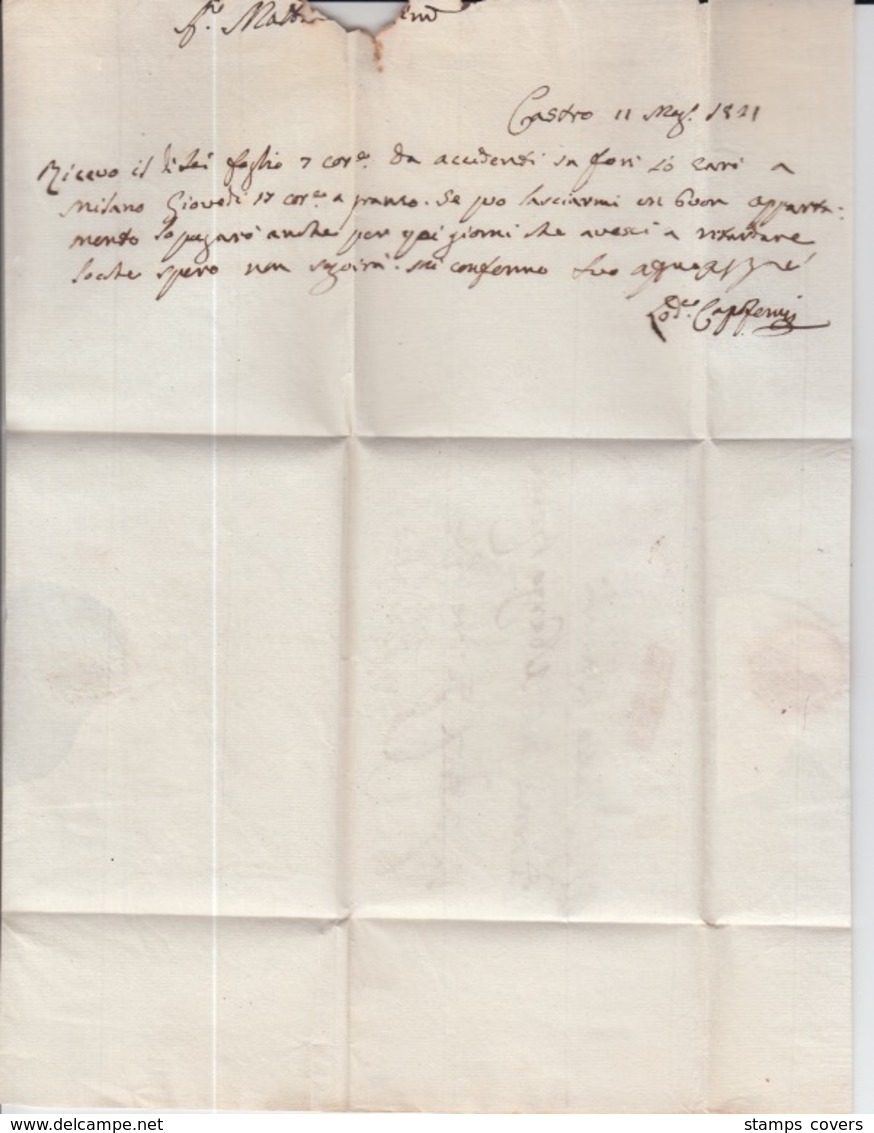 Castro 11 Mag.º 1821
Ricevo il di Lei foglio 7 cor.e da accidenti in fori io sarò a
Milano Giovedi 17 cor.e a pranzo. Se può lasciarmi un buon apparta-
mento lo pagarò anche per qei giorni che avessi a ritardare
loche spero non seguirà. mi confermo Suo
Lod.co Capoferri
www.delcampe.net
stamps covers